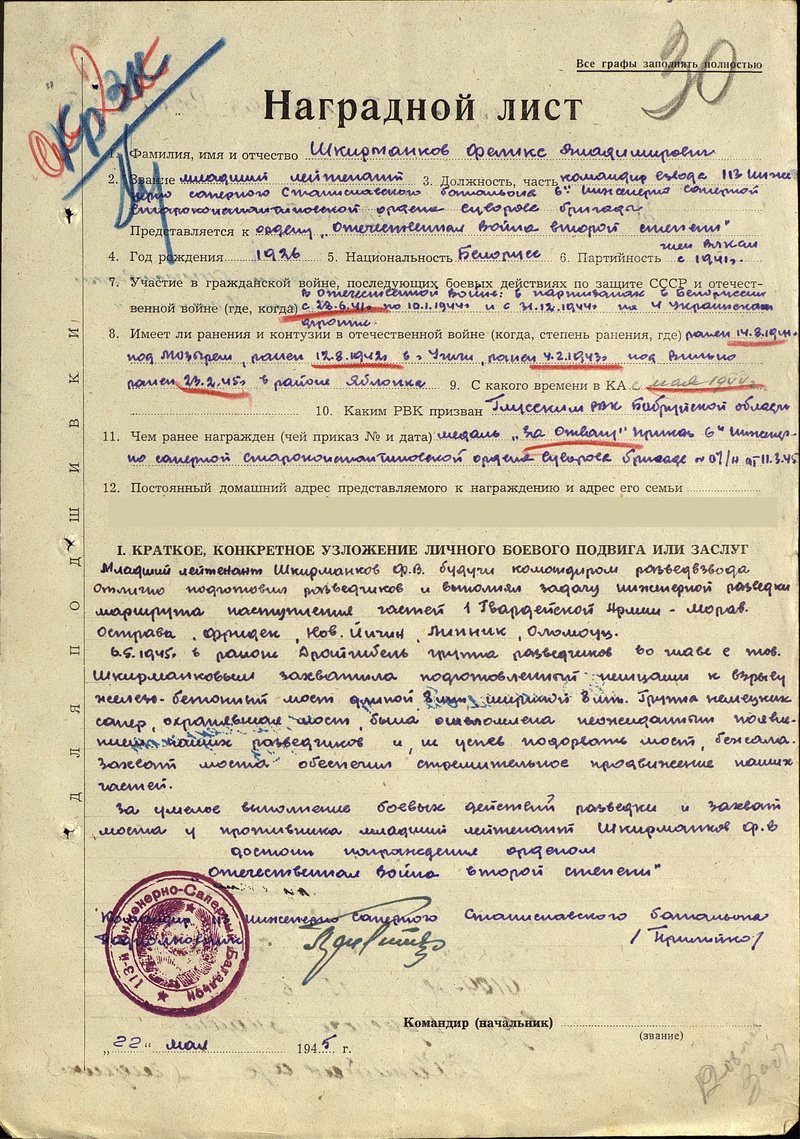 30
Все графы заполнять полностью
Наградной лист
1. Фамилия, имя и отчество Шкирманков Феликс Владимирович
2. Звание младший лейтенант 3. Должность, часть командир взвода 113 инже
нерно саперного Станиславского батальона 6й инженерно саперной
Староконстантиновской ордена Суворова бригады
Представляется к ордену „Отечественная война второй степени"
4. Год рождения 1926 5. Национальность Белорусс 6. Партийность член ВЛКСМ
с 1941г.
7. Участие в гражданской войне, последующих боевых действиях по защите СССР и отечест-
в Отечественной войне: в партизанах в Белоруссии
венной войне (где, когда) с 28.6.41г. по 10.1.1944г. и с 31.12.1944г. на 4 Украинском
фронте.
8. Имеет ли ранения и контузии в отечественной войне (когда, степень ранения, где) ранен 14.8.1941г.
под Мозырем, ранен 12.8.1942г. в ранен 4.2.1943г. под
ранен 23.2.45г. в районе Яблонка 9. С какого времени в КА с мая 1944г.
10. Каким РВК призван Глусским РВК Бобруйской области
11. Чем ранее награжден (чей приказ № и дата) медаль „За Отвагу" приказ 6й инженер-
но саперной Староконстантиновской ордена Суворова бригаде № 07/н от 11.3.45
12. Постоянный домашний адрес представляемого к награждению и адрес его семьи
ДЛЯ ПОДШИВКИ
I. КРАТКОЕ, КОНКРЕТНОЕ УЗЛОЖЕНИЕ ЛИЧНОГО БОЕВОГО ПОДВИГА ИЛИ ЗАСЛУГ
Младший лейтенант Шкирманков Ф.В. будучи командиром разведвзвода
отлично подготовил разведчиков и выполнял задачу инженерной разведки
маршрута наступления частей 1 Гвардейской Армии - Морав.
Острава, Фридек, Нов. Йичин, Липник, Оломоуц.
6.5.1945г. в районе группа разведчиков во главе с тов.
Шкирманковым захватила подготовленный немцами к взрыву
железо-бетонный мост длиной шириной 8 мт. Группа немецких
сапер, охранявшая мост, была ошеломлена неожиданным появле-
нием наших разведчиков и, не успев подорвать мост, бежала.
Захват моста обеспечил стремительное продвижение наших
частей.
За умелое выполнение боевых действий разведки и захват
моста у противника младший лейтенант Шкирманков Ф.В
достоин награждения орденом
„Отечественная война второй степени"
Командир инженерно саперного Станиславского батальона
Подполковник / Прилипко /
113-й Инженерно-Саперный Батальон
Командир (начальник)
(звание)
„22" мая 1945 г.